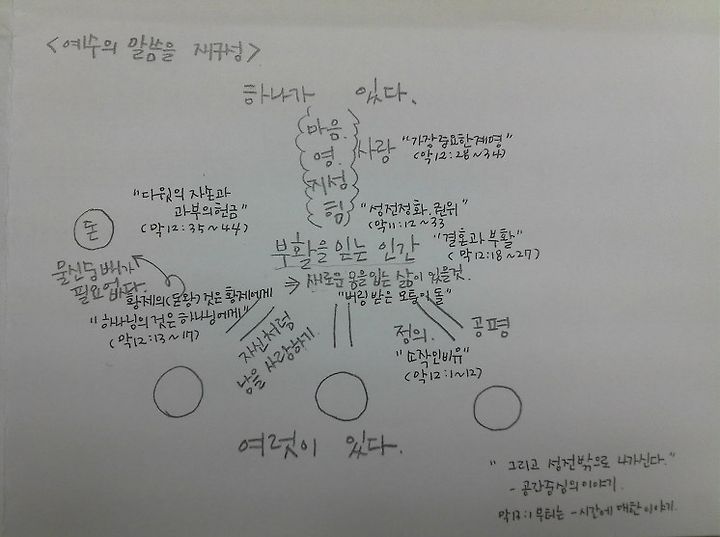 <예수의 말씀을 재구성>
하나가 있다.
마음.
영.
지성
힘
사랑
"가장중요한계명"
(막12:28~34)
"다윗의 자손과
과부의헌금"
(막12:35~44)
돈
"성전정화.권위"
(막11:12~33
부활을 믿는 인간
"결혼과 부활"
(막12:18~27)
물신숭배가
필요없다.
⇒ 새로운 몸을 입는 삶이 있을것.
"버림 받은 모퉁이 돌"
황제의(돈왕) 것은 황제에게
"하나님의 것은 하나님에게"
(막12:13~17)
자신처럼
남을 사랑하기.
정의.
공평
"소작인비유"
(막12:1~12)
여럿이 있다.
"그리고 성전밖으로 나가신다."
- 공간중심의이야기.
막13:1부터는 - 시간에 대한이야기.